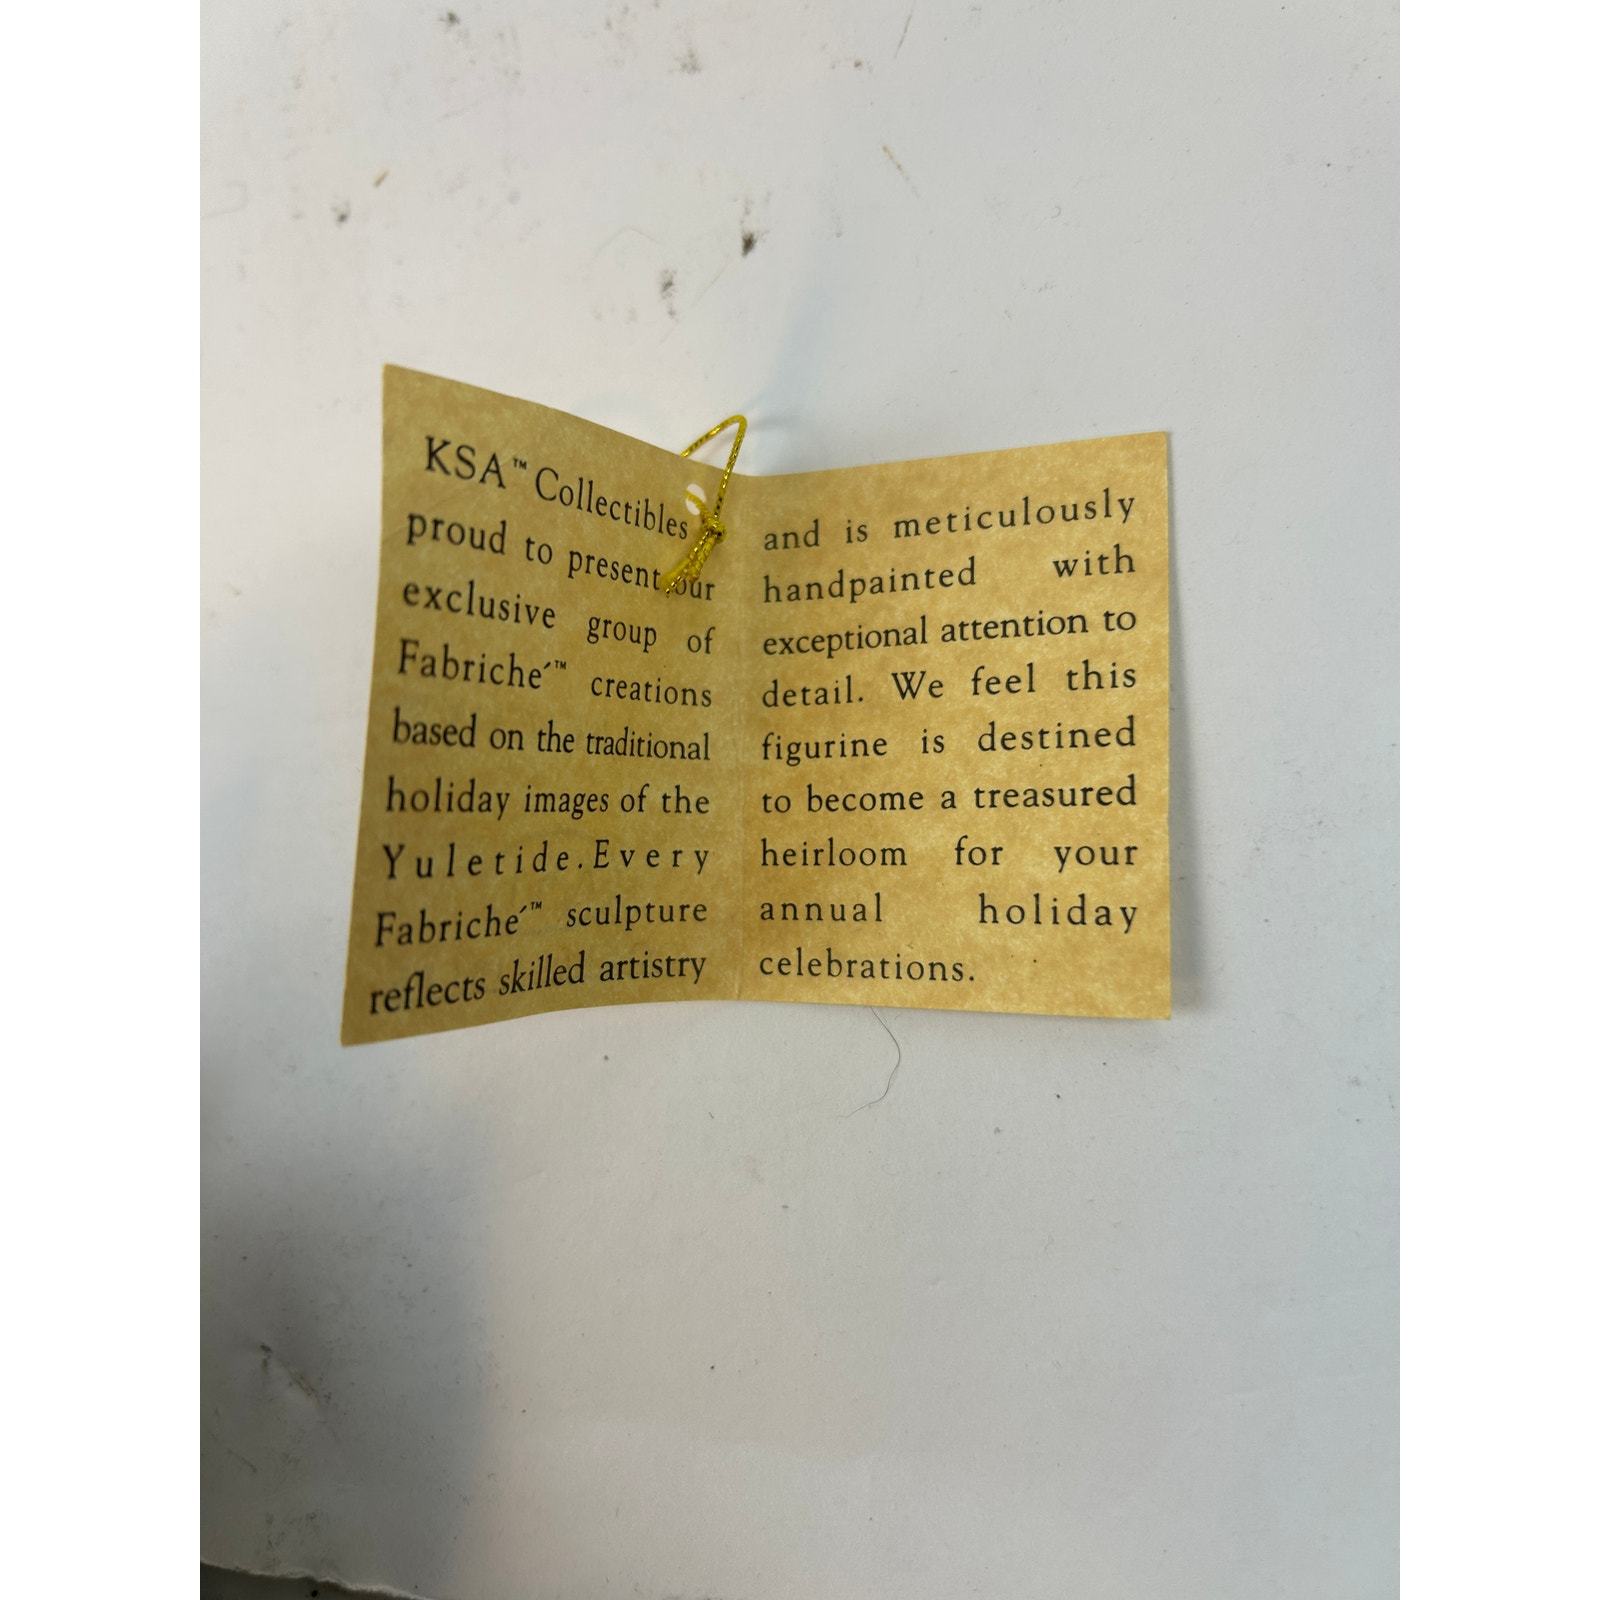 KSA™ Collectibles
proud to present our
exclusive group of
Fabriché™ creations
based on the traditional
holiday images of the
Yuletide.Every
Fabriché™ sculpture
reflects skilled artistry
and is meticulously
handpainted with
exceptional attention to
detail. We feel this
figurine is destined
to become a treasured
heirloom for your
annual holiday
celebrations.